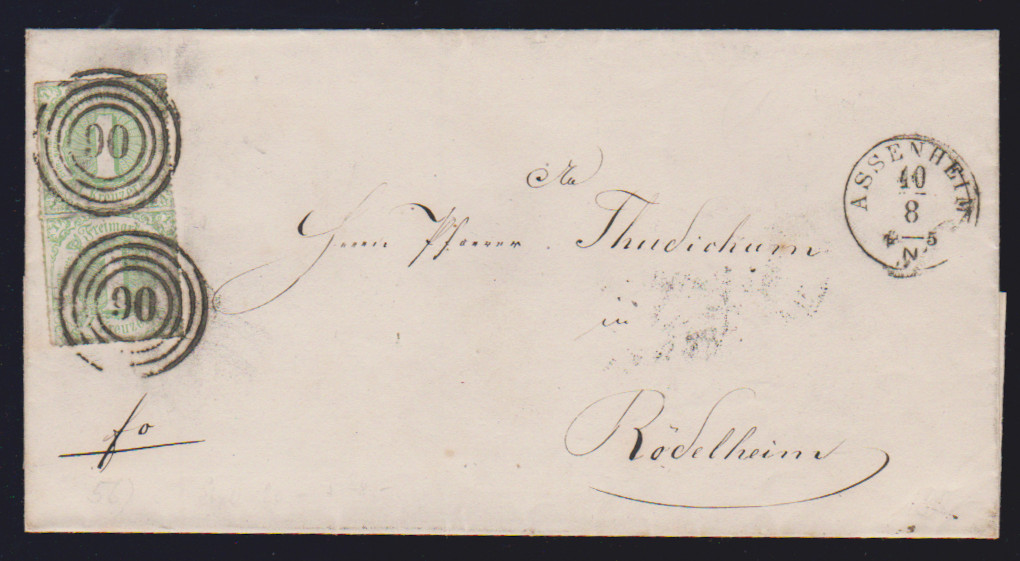 90
Kreuzer
Freimarke
90
Kreuzer
ASSENHEIM
10
8
4 — 5
N.
An
Herrn Pfarrer Thudichum
in
Rödelheim
fo